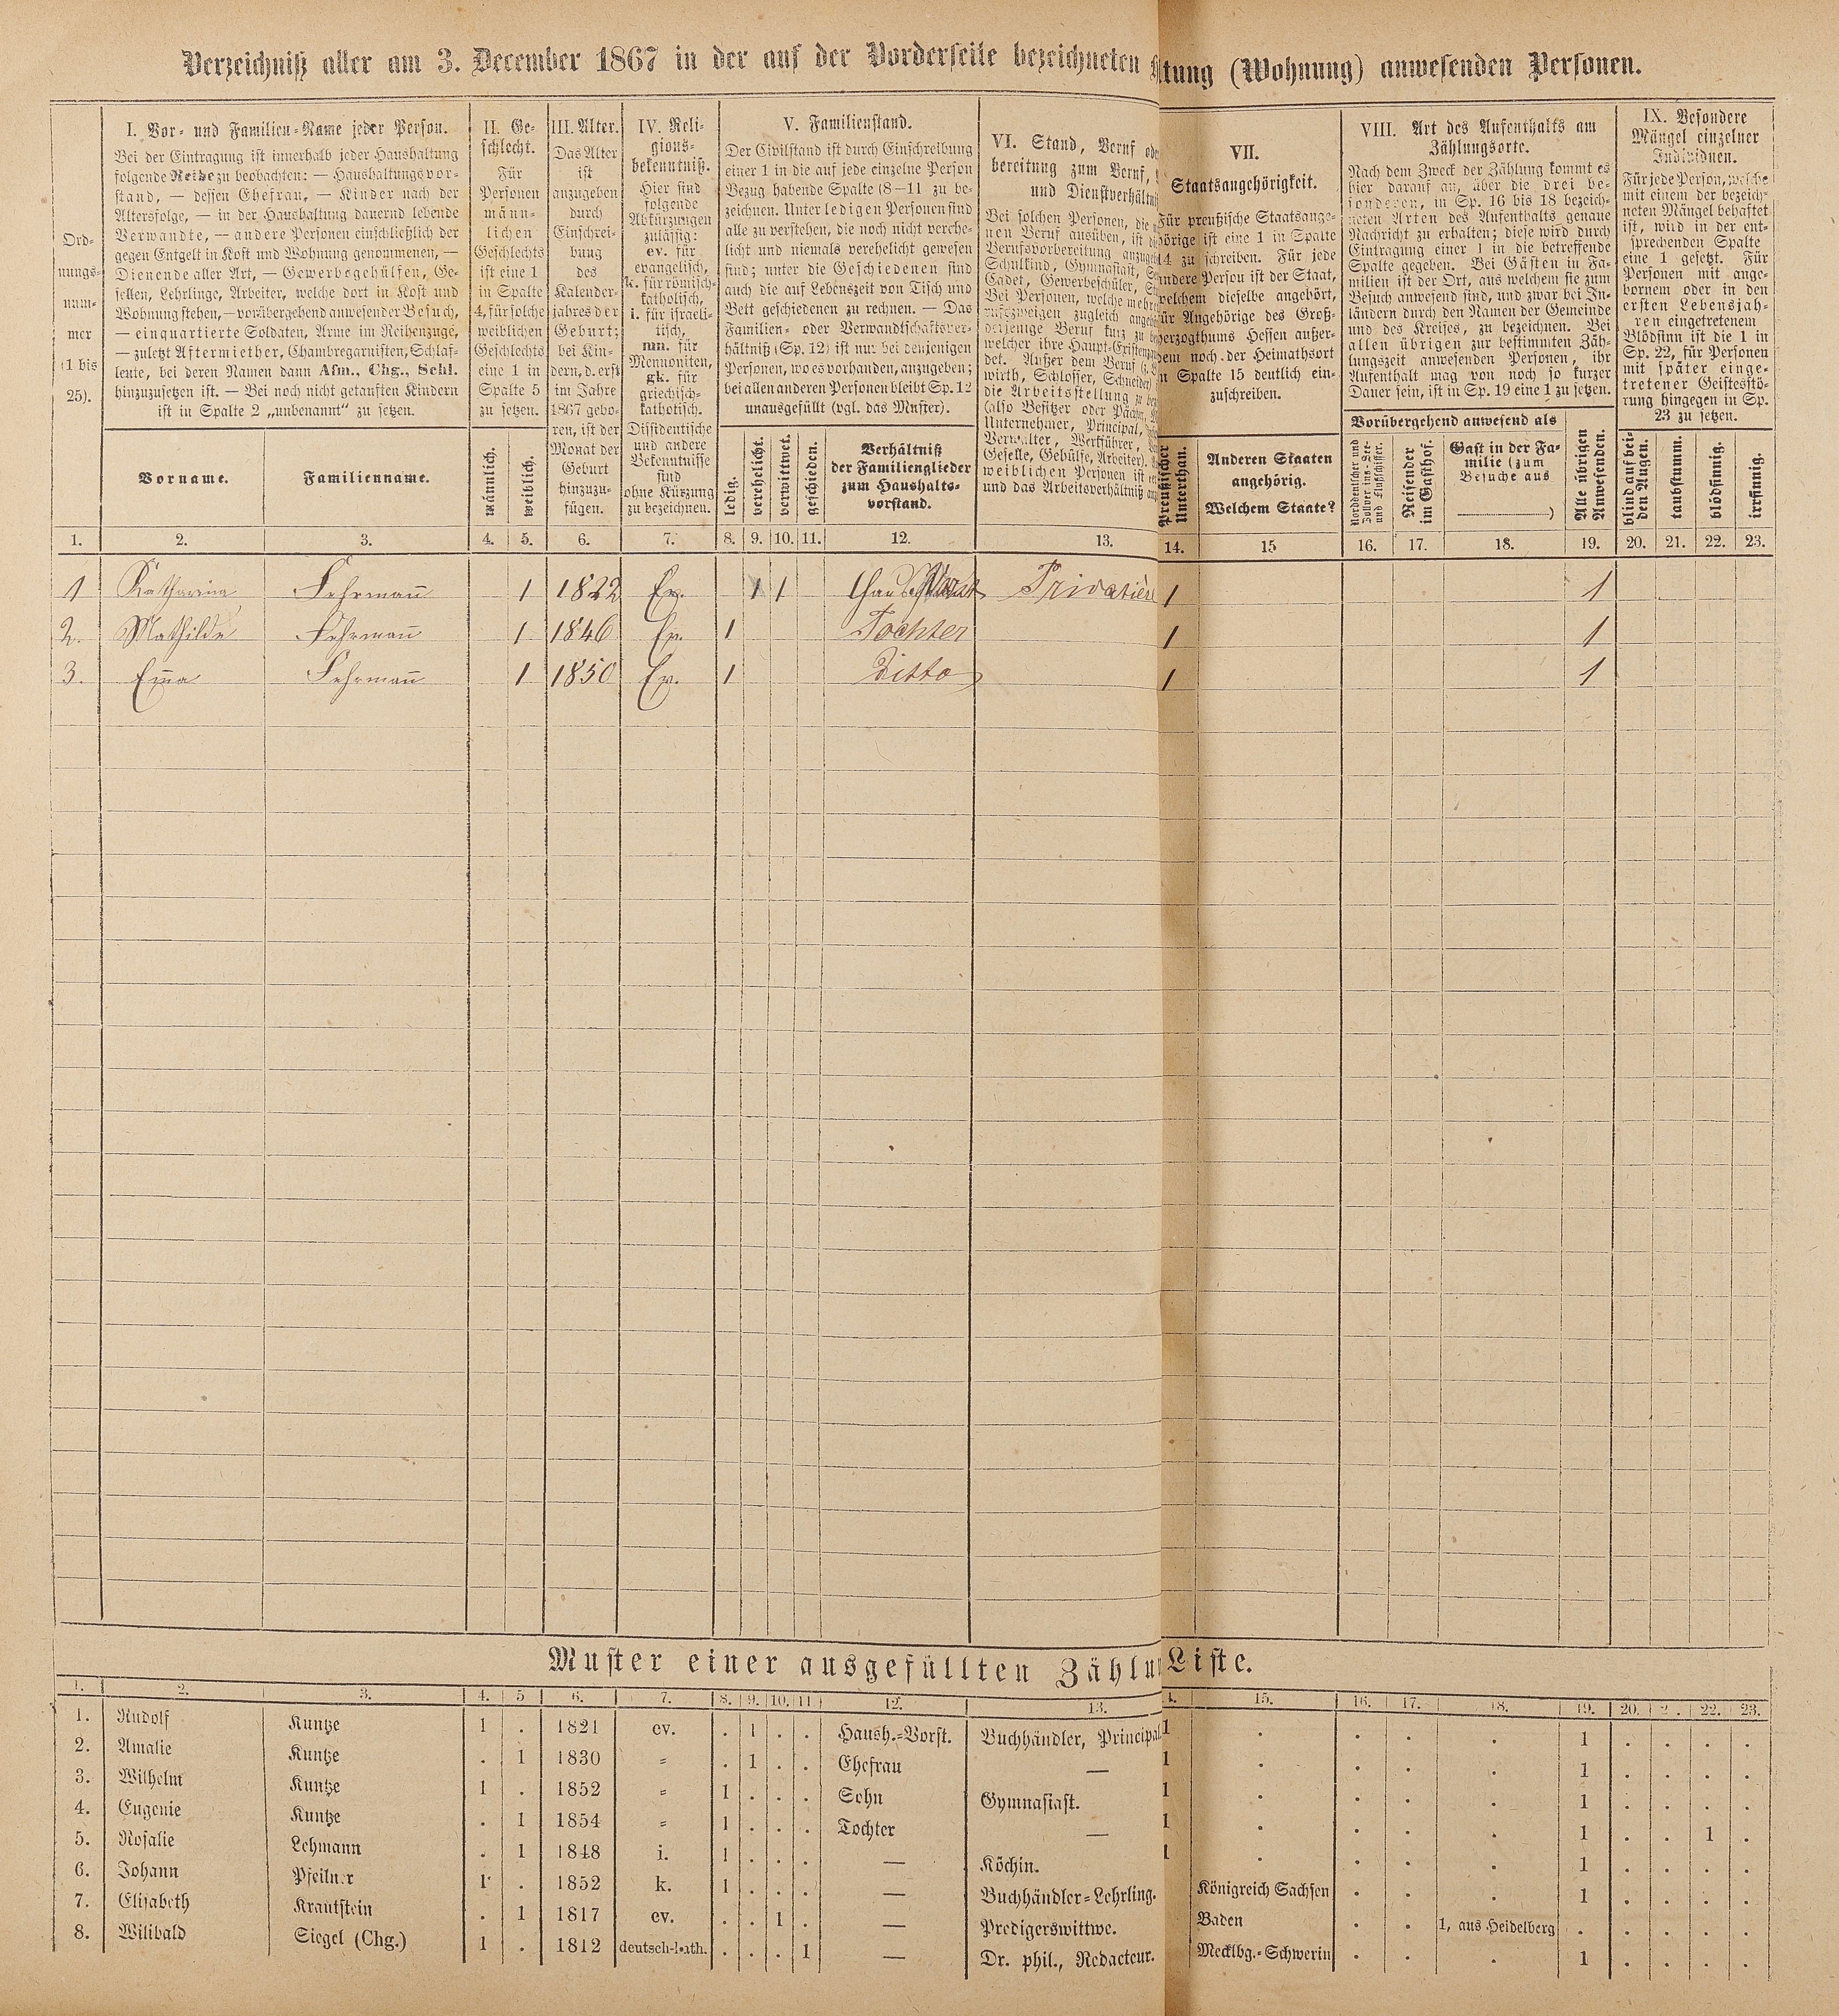 Verzeichniß aller am 3. December 1867 in der auf der Vorderseite bezeichneten
tung (Wohnung) anwesenden Personen.
Ord-
nungs-
num-
mer
(1 bis
25).
I. Vor- und Familien-Name jeder Person.
Bei der Eintragung ist innerhalb jeder Haushaltung
folgende Reihe zu beobachten: — Haushaltungsvor-
stand, — dessen Ehefrau, — Kinder nach der
Altersfolge, — in der Haushaltung dauernd lebende
Verwandte, — andere Personen einschließlich der
gegen Entgelt in Kost und Wohnung genommenen, —
Dienende aller Art, — Gewerbegehülfen, Ge-
sellen, Lehrlinge, Arbeiter, welche dort in Kost und
Wohnung stehen, — vorübergehend anwesender Besuch,
— einquartierte Soldaten, Arme im Reihenzuge,
— zuletzt Aftermiether, Chambregarnisten, Schlaf-
leute, bei deren Namen dann Afm., Chg., Schl.
hinzuzusetzen ist. — Bei noch nicht getauften Kindern
ist in Spalte 2 „unbenannt“ zu setzen.
Vorname.
Familienname.
II. Ge-
schlecht.
Für
Personen
männ-
lichen
Geschlechts
ist eine 1
in Spalte
4, für solche
weiblichen
Geschlechts
eine 1 in
Spalte 5
zu setzen.
männlich.
weiblich.
III. Alter.
Das Alter
ist
anzugeben
durch
Einschrei-
bung
des
Kalender-
jahres der
Geburt;
bei Kin-
dern, d. erst
im Jahre
1867 gebo-
ren, ist der
Monat der
Geburt
hinzuzu-
fügen.
IV. Reli-
gions-
bekenntniß.
Hier sind
folgende
Abkürzungen
zulässig:
ev. für
evangelisch,
k. für römisch-
katholisch,
i. für israeli-
tisch,
mn. für
Mennoniten,
gk. für
griechisch-
katholisch.
Dissidentische
und andere
Bekenntnisse
sind
ohne Kürzung
zu bezeichnen.
V. Familienstand.
Der Civilstand ist durch Einschreibung
einer 1 in die auf jede einzelne Person
Bezug habende Spalte (8—11 zu be-
zeichnen. Unter ledigen Personen sind
alle zu verstehen, die noch nicht verehe-
licht und niemals verehelicht gewesen
sind; unter die Geschiedenen sind
auch die auf Lebenszeit von Tisch und
Bett geschiedenen zu rechnen. — Das
Familien- oder Verwandtschaftsver-
hältniß (Sp. 12) ist nur bei denjenigen
Personen, wo es vorhanden, anzugeben;
bei allen anderen Personen bleibt Sp. 12
unausgefüllt (vgl. das Muster).
ledig.
verehelicht.
verwittwet.
geschieden.
Verhältniß
der Familienglieder
zum Haushalts-
vorstand.
VI. Stand, Beruf
bereitung zum Beruf,
und
Bei solchen Personen, die
nen Beruf ausüben, ist
Berufsvorbereitung
Schulkind, Gymnasiast,
Cadet, Gewerbeschüler,
Bei Personen, welche
zugleich
derjenige Beruf kurz zu
welcher ihre
det. Außer dem Beruf
wirth, Schlosser, Schneider)
die Arbeitsstellung zu
(also Besitzer oder
Unternehmer, Principal,
Verwalter, Werkführer,
Geselle, Gehülfe, Arbeiter).
weiblichen Personen ist
und das Arbeitsverhältniß
VII.
Staatsangehörigkeit.
Für preußische Staatsange-
hörige ist eine 1 in Spalte
14 zu schreiben. Für jede
andere Person ist der Staat,
welchem dieselbe angehört,
für Angehörige des Groß-
herzogthums Hessen außer-
dem noch der Heimathsort
in Spalte 15 deutlich ein-
zuschreiben.
Preußischer
Unterthan.
Anderen Staaten
angehörig.
Welchem Staate?
VIII. Art des Aufenthalts am
Zählungsorte.
Nach dem Zweck der Zählung kommt es
hier darauf an, über die drei be-
sonderen, in Sp. 16 bis 18 bezeich-
neten Arten des Aufenthalts genaue
Nachricht zu erhalten; diese wird durch
Eintragung einer 1 in die betreffende
Spalte gegeben. Bei Gästen in Fa-
milien ist der Ort, aus welchem sie zum
Besuch anwesend sind, und zwar bei In-
ländern durch den Namen der Gemeinde
und des Kreises, zu bezeichnen. Bei
allen übrigen zur bestimmten Zäh-
lungszeit anwesenden Personen, ihr
Aufenthalt mag von noch so kurzer
Dauer sein, ist in Sp. 19 eine 1 zu setzen.
Vorübergehend anwesend als
Norddeutscher und
Zollvereins-See-
und Flußschiffer.
Reisender
im Gasthof.
Gast in der Fa-
milie (zum
Besuche aus
)
Alle übrigen
Anwesenden.
IX. Besondere
Mängel einzelner
Individuen.
Für jede Person, welche
mit einem der bezeich-
neten Mängel behaftet
ist, wird in der ent-
sprechenden Spalte
eine 1 gesetzt. Für
Personen mit ange-
bornem oder in den
ersten Lebensjah-
ren eingetretenem
Blödsinn ist die 1 in
Sp. 22, für Personen
mit später einge-
tretener Geistesstö-
rung hingegen in Sp.
23 zu setzen.
blind auf bei-
den Augen.
taubstumm.
blödsinnig.
irrsinnig.
1. 2. 3. 4. 5. 6. 7. 8. 9. 10. 11. 12. 13. 14. 15 16. 17. 18. 19. 20. 21. 22. 23.
1 Katharina Fehrman̄ 1 1822 Ev. 1 1 Haus Vorst Privatière 1 1
2. Mathilde Fehrman̄ 1 1846 Ev. 1 Tochter 1 1
3. Em̄a Fehrman̄ 1 1850 Ev. 1 Ditto 1 1
Muster einer ausgefüllten Zählu Liste.
1. 2. 3. 4. 5 6. 7. 8. 9. 10. 11 12. 13. 15. 16. 17. 18. 19. 20. 22. 23.
1. Rudolf Kuntze 1 . 1821 ev. . 1 . . Haush.-Vorst. Buchhändler, Principal 1 . . . . 1 . . . .
2. Amalie Kuntze . 1 1830 " . 1 . . Ehefrau — 1 . . . . 1 . . . .
3. Wilhelm Kuntze 1 . 1852 " 1 . . . Sohn Gymnasiast. 1 . . . . 1 . . . .
4. Eugenie Kuntze . 1 1854 " 1 . . . Tochter — 1 . . . . 1 . . 1 .
5. Rosalie Lehmann . 1 1848 i. 1 . . . — Köchin. 1 . . . . 1 . . . .
6. Johann Pfeilner 1 . 1852 k. 1 . . . — Buchhändler-Lehrling. Königreich Sachsen . . . 1 . . . .
7. Elisabeth Krautstein . 1 1817 ev. . . 1 . — Predigerswittwe. Baden . . 1, aus Heidelberg . . . . .
8. Wilibald Siegel (Chg.) 1 . 1812 deutsch-kath. . . . 1 — Dr. phil., Redacteur. Mecklbg.-Schwerin . . . 1 . . . .